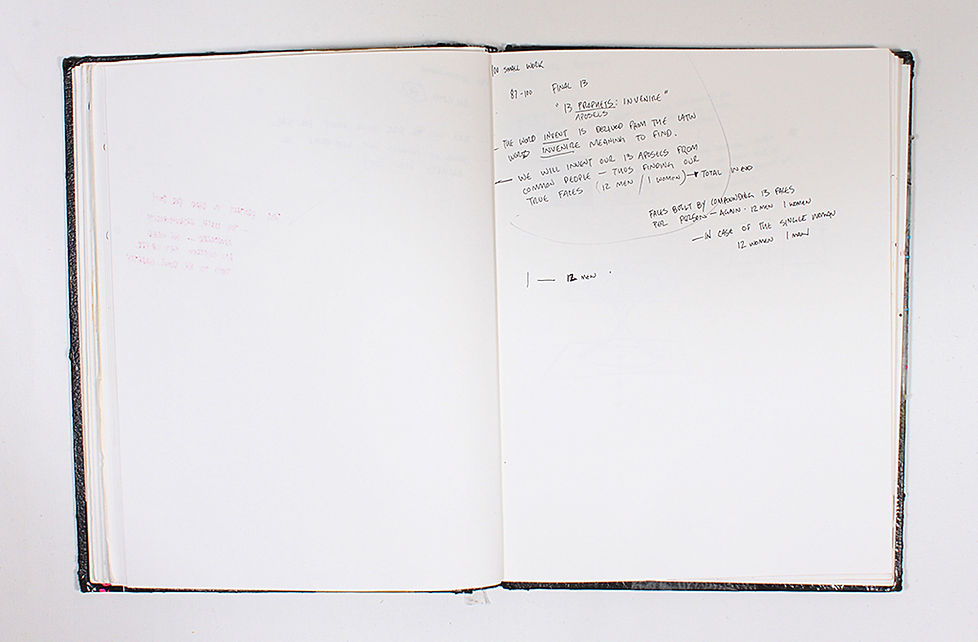 100 SMALL WORK
87-100 FINAL 13
"13 PROPHETS: INVENIRE"
APOSELS
- THE WORD INVENT IS DERIVED FROM THE LATIN
WORD INVENIRE MEANING TO FIND.
- WE WILL INVENT OUR 13 APOSELS FROM
COMMON PEOPLE - THUS FINDING OUR
TRUE FACES (12 MEN / 1 WOMAN) → TOTAL IN END
FACES BUILT BY COMPOUNDING 13 FACES
PER PERSON - AGAIN - 12 MEN 1 WOMEN
- IN CASE OF THE SINGLE WOMAN
12 WOMEN 1 MAN
1 — 12 MEN